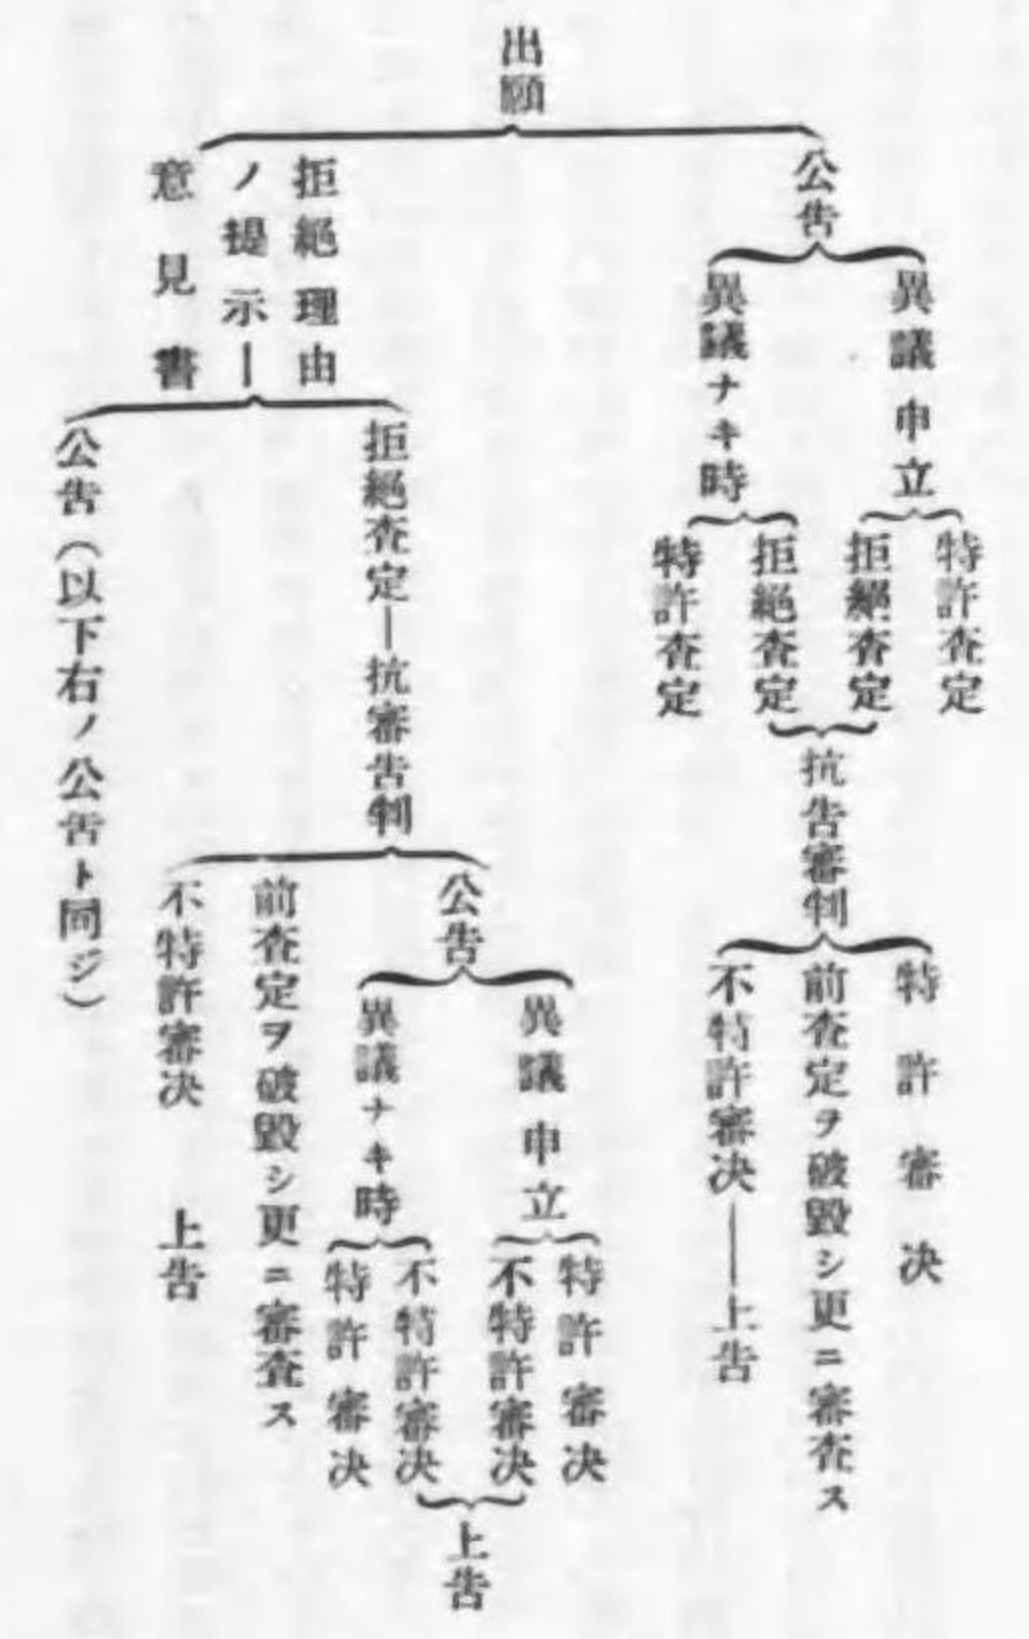 出願
公告
異議申立
特許査定
拒絕査定
異議ナキ時
拒絕査定
特許査定
抗告審判
特許審决
前査定ヲ破毀シ更ニ審査ス
不特許審决―上告
拒絕理由
ノ提示―
意見書
拒絕査定―抗審告判
公告
異議申立
特許審决
不特許審决
異議ナキ時
不特許審决
特許審决
上告
前査定ヲ破毀シ更ニ審査ス
不特許審决 上告
公告(以下右ノ公告ト同ジ)